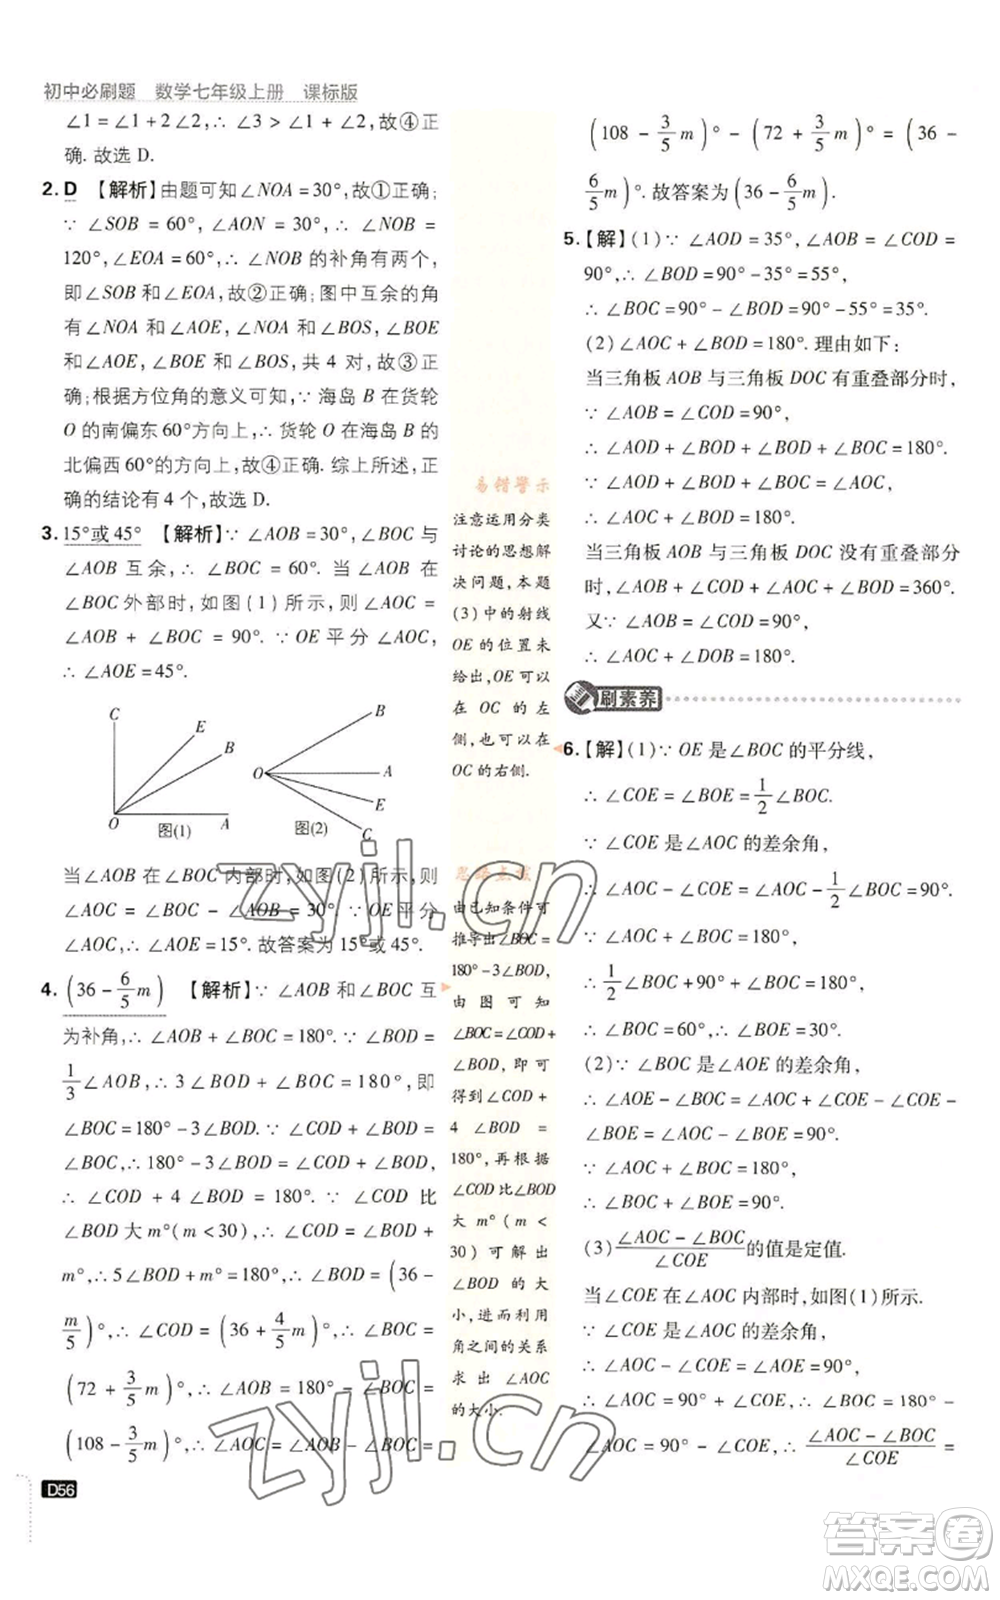 初中必刷题 数学七年级上册 课标版
∠1=∠1+2∠2,∴∠3>∠1+∠2,故④正
确. 故选 D.
2. D 【解析】由题可知∠NOA=30°,故①正确;
∵ ∠SOB=60°,∠AON=30°,∴ ∠NOB=
120°,∠EOA=60°,∴ ∠NOB 的补角有两个,
即∠SOB 和∠EOA,故②正确;图中互余的角
有∠NOA 和∠AOE,∠NOA 和∠BOS,∠BOE
和∠AOE,∠BOE 和∠BOS,共 4 对,故③正
确;根据方位角的意义可知,∵ 海岛 B 在货轮
O 的南偏东60°方向上,∴ 货轮 O 在海岛 B 的
北偏西60°的方向上,故④正确. 综上所述,正
确的结论有 4 个,故选 D.
3. 15°或 45° 【解析】∵ ∠AOB=30°,∠BOC 与
∠AOB 互余,∴ ∠BOC = 60°. 当 ∠AOB 在
∠BOC外部时,如图(1)所示,则∠AOC =
∠AOB + ∠BOC = 90°. ∵ OE 平分 ∠AOC,
∴ ∠AOE=45°.
C E B O A 图(1)
B O A E C 图(2)
当∠AOB 在∠BOC 内部时,如图(2)所示,则
∠AOC = ∠BOC - ∠AOB = 30°. ∵ OE平分
∠AOC,∴ ∠AOE=15°.故答案为15°或 45°.
4. (36-6/5m) 【解析】∵ ∠AOB 和∠BOC 互
为补角,∴ ∠AOB+∠BOC=180°. ∵ ∠BOD=
1/3∠AOB,∴ 3∠BOD+∠BOC=180°,即
∠BOC=180°-3∠BOD. ∵ ∠COD+∠BOD=
∠BOC,∴ 180°-3∠BOD=∠COD+∠BOD,
∴ ∠COD + 4 ∠BOD = 180°. ∵ ∠COD 比
∠BOD 大 m°(m<30),∴ ∠COD = ∠BOD +
m°,∴ 5∠BOD+m°=180°,∴ ∠BOD=(36-
m/5)°,∴ ∠COD=(36+4/5m)°,∴ ∠BOC=
(72+3/5m)°,∴ ∠AOB=180°-∠BOC=
(108-3/5m)°,∴ ∠AOC=∠AOB-∠BOC=
D56
易错警示
注意运用分类
讨论的思想解
决问题,本题
(3)中的射线
OE 的位置未
给出,OE 可以
在 OC 的左
侧,也可以在
OC 的右侧.
思路点拨
由已知条件可
推导出∠BOC=
180°-3∠BOD,
由图可知
∠BOC=∠COD+
∠BOD,即可
得到∠COD+
4 ∠BOD =
180°,再根据
∠COD比∠BOD
大 m°(m<
30)可解出
∠BOD 的大
小,进而利用
角之间的关系
求出∠AOC
的大小.
(108-3/5m)°-(72+3/5m)°=(36-
6/5m)°.故答案为(36-6/5m).
5. 【解】(1)∵ ∠AOD=35°,∠AOB=∠COD=
90°,∴ ∠BOD=90°-35°=55°,
∴ ∠BOC=90°-∠BOD=90°-55°=35°.
(2)∠AOC+∠BOD=180°. 理由如下:
当三角板 AOB 与三角板 DOC 有重叠部分时,
∵ ∠AOB=∠COD=90°,
∴ ∠AOD+∠BOD+∠BOD+∠BOC=180°.
∵ ∠AOD+∠BOD+∠BOC=∠AOC,
∴ ∠AOC+∠BOD=180°.
当三角板 AOB 与三角板 DOC 没有重叠部分
时,∠AOB + ∠COD + ∠AOC + ∠BOD = 360°.
又∵ ∠AOB=∠COD=90°,
∴ ∠AOC+∠DOB=180°.
刷素养
6. 【解】(1)∵ OE 是∠BOC 的平分线,
∴ ∠COE=∠BOE=1/2∠BOC.
∵ ∠COE 是∠AOC 的差余角,
∴ ∠AOC-∠COE=∠AOC-1/2∠BOC=90°.
∵ ∠AOC+∠BOC=180°,
∴ 1/2∠BOC+90°+∠BOC=180°,
∴ ∠BOC=60°,∴ ∠BOE=30°.
(2)∵ ∠BOC 是∠AOE 的差余角,
∴ ∠AOE-∠BOC=∠AOC+∠COE-∠COE-
∠BOE=∠AOC-∠BOE=90°.
∵ ∠AOC+∠BOC=180°,
∴ ∠BOC+∠BOE=90°.
(3)(∠AOC-∠BOC)/∠COE的值是定值.
当∠COE 在∠AOC 内部时,如图(1)所示.
∵ ∠COE 是∠AOC 的差余角,
∴ ∠AOC-∠COE=90°,
∴ ∠AOC=90°+∠COE,∴ ∠BOC=180°-
∠AOC=90°-∠COE,∴ (∠AOC-∠BOC)/∠COE =
zyjl.cn
zyjl.cn
答案圈
MXQE.COM